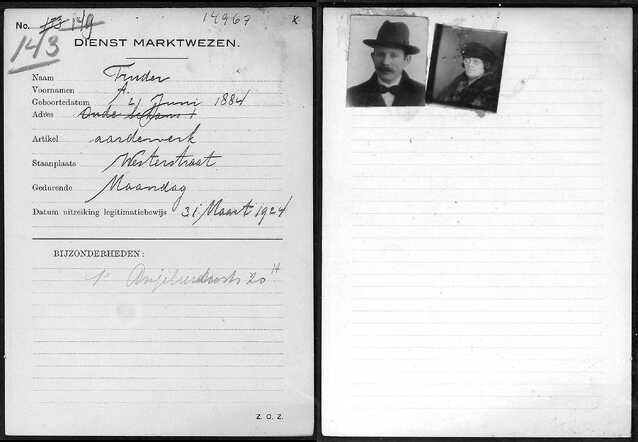 No. 173 149 14967 x
143
DIENST MARKTWEZEN.
Naam Truder
Voornamen A.
Geboortedatum 21 Juni 1884
Adres Oude
Artikel aardewerk
Staanplaats Westerstraat.
Gedurende Maandag
Datum uitreiking legitimatiebewijs 31 Maart 1924
BIJZONDERHEDEN:
1e Anjeliersdwarsstr 20 H
Z. O. Z.